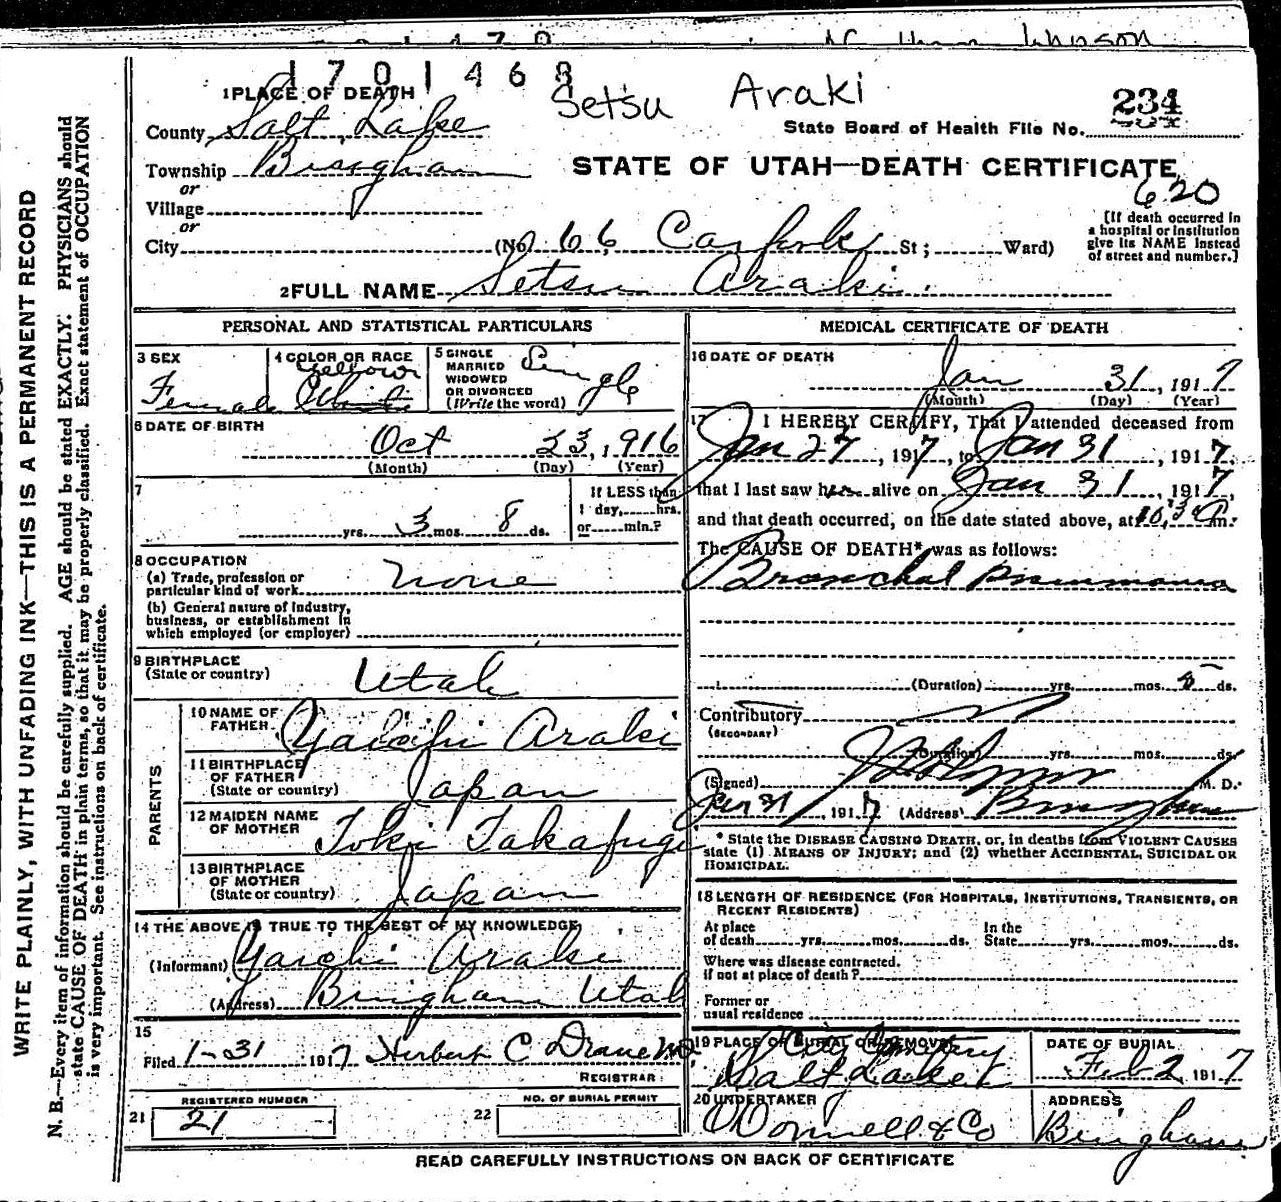 1701468
Setsu Araki
1 PLACE OF DEATH
234
County Salt Lake
State Board of Health File No.
Township Bingham
STATE OF UTAH—DEATH CERTIFICATE
or
620
Village
or
City (No. 66 Carfork St; Ward)
[If death occurred in a hospital or institution give its NAME instead of street and number.]
2 FULL NAME Setsu Araki
PERSONAL AND STATISTICAL PARTICULARS
3 SEX Female
4 COLOR OR RACE Yellow White
5 SINGLE MARRIED WIDOWED OR DIVORCED (Write the word) Single
6 DATE OF BIRTH Oct 23, 1916
(Month) (Day) (Year)
7 yrs. 3 mos. 8 ds.
If LESS than 1 day, hrs. or min.?
8 OCCUPATION
(a) Trade, profession or particular kind of work none
(b) General nature of industry, business, or establishment in which employed (or employer)
9 BIRTHPLACE (State or country) Utah
PARENTS
10 NAME OF FATHER Yaichi Araki
11 BIRTHPLACE OF FATHER (State or country) Japan
12 MAIDEN NAME OF MOTHER Toki Takafugi
13 BIRTHPLACE OF MOTHER (State or country) Japan
14 THE ABOVE IS TRUE TO THE BEST OF MY KNOWLEDGE
(Informant) Yaichi Araki
(Address) Bingham Utah
15
Filed 1-31 1917 Herbert C Drane MD
REGISTRAR
REGISTERED NUMBER
21 21
NO. OF BURIAL PERMIT
22
MEDICAL CERTIFICATE OF DEATH
16 DATE OF DEATH
Jan 31, 1917
(Month) (Day) (Year)
17 I HEREBY CERTIFY, That I attended deceased from
Jan 27, 1917, to Jan 31, 1917,
that I last saw her alive on Jan 31, 1917,
and that death occurred, on the date stated above, at 10:30 P m.
The CAUSE OF DEATH* was as follows:
Bronchal Pneumonia
(Duration) yrs. mos. 5 ds.
Contributory
(SECONDARY)
(Duration) yrs. mos. ds.
(Signed) M. D.
Jan 31, 1917 (Address) Bingham
* State the DISEASE CAUSING DEATH, or, in deaths from VIOLENT CAUSES state (1) MEANS OF INJURY; and (2) whether ACCIDENTAL, SUICIDAL OR HOMICIDAL.
18 LENGTH OF RESIDENCE (FOR HOSPITALS, INSTITUTIONS, TRANSIENTS, OR RECENT RESIDENTS)
At place of death yrs. mos. ds. In the State yrs. mos. ds.
Where was disease contracted, if not at place of death?
Former or usual residence
19 PLACE OF BURIAL OR REMOVAL City Cemetery Salt Lake
DATE OF BURIAL Feb 2, 1917
20 UNDERTAKER O'Donnell & Co
ADDRESS Bingham
READ CAREFULLY INSTRUCTIONS ON BACK OF CERTIFICATE
WRITE PLAINLY, WITH UNFADING INK—THIS IS A PERMANENT RECORD
N. B.—Every item of information should be carefully supplied. AGE should be stated EXACTLY. PHYSICIANS should
state CAUSE OF DEATH in plain terms, so that it may be properly classified. Exact statement of OCCUPATION
is very important. See instructions on back of certificate.